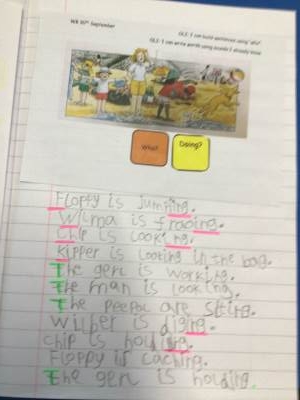 WB 30th September
OL2: I can build sentences using 'who'
OL3: I can write words using sounds I already know
Who?
Doing?
Floppy is Jumping.
Wilma is fraoing.
Chip is looking.
Kipper is looting in the bag.
The gerl is working.
The man is looking.
The peepol are siting.
Wilber is diging.
Chip is houlding.
Floppy is caching.
The gerl is holding.